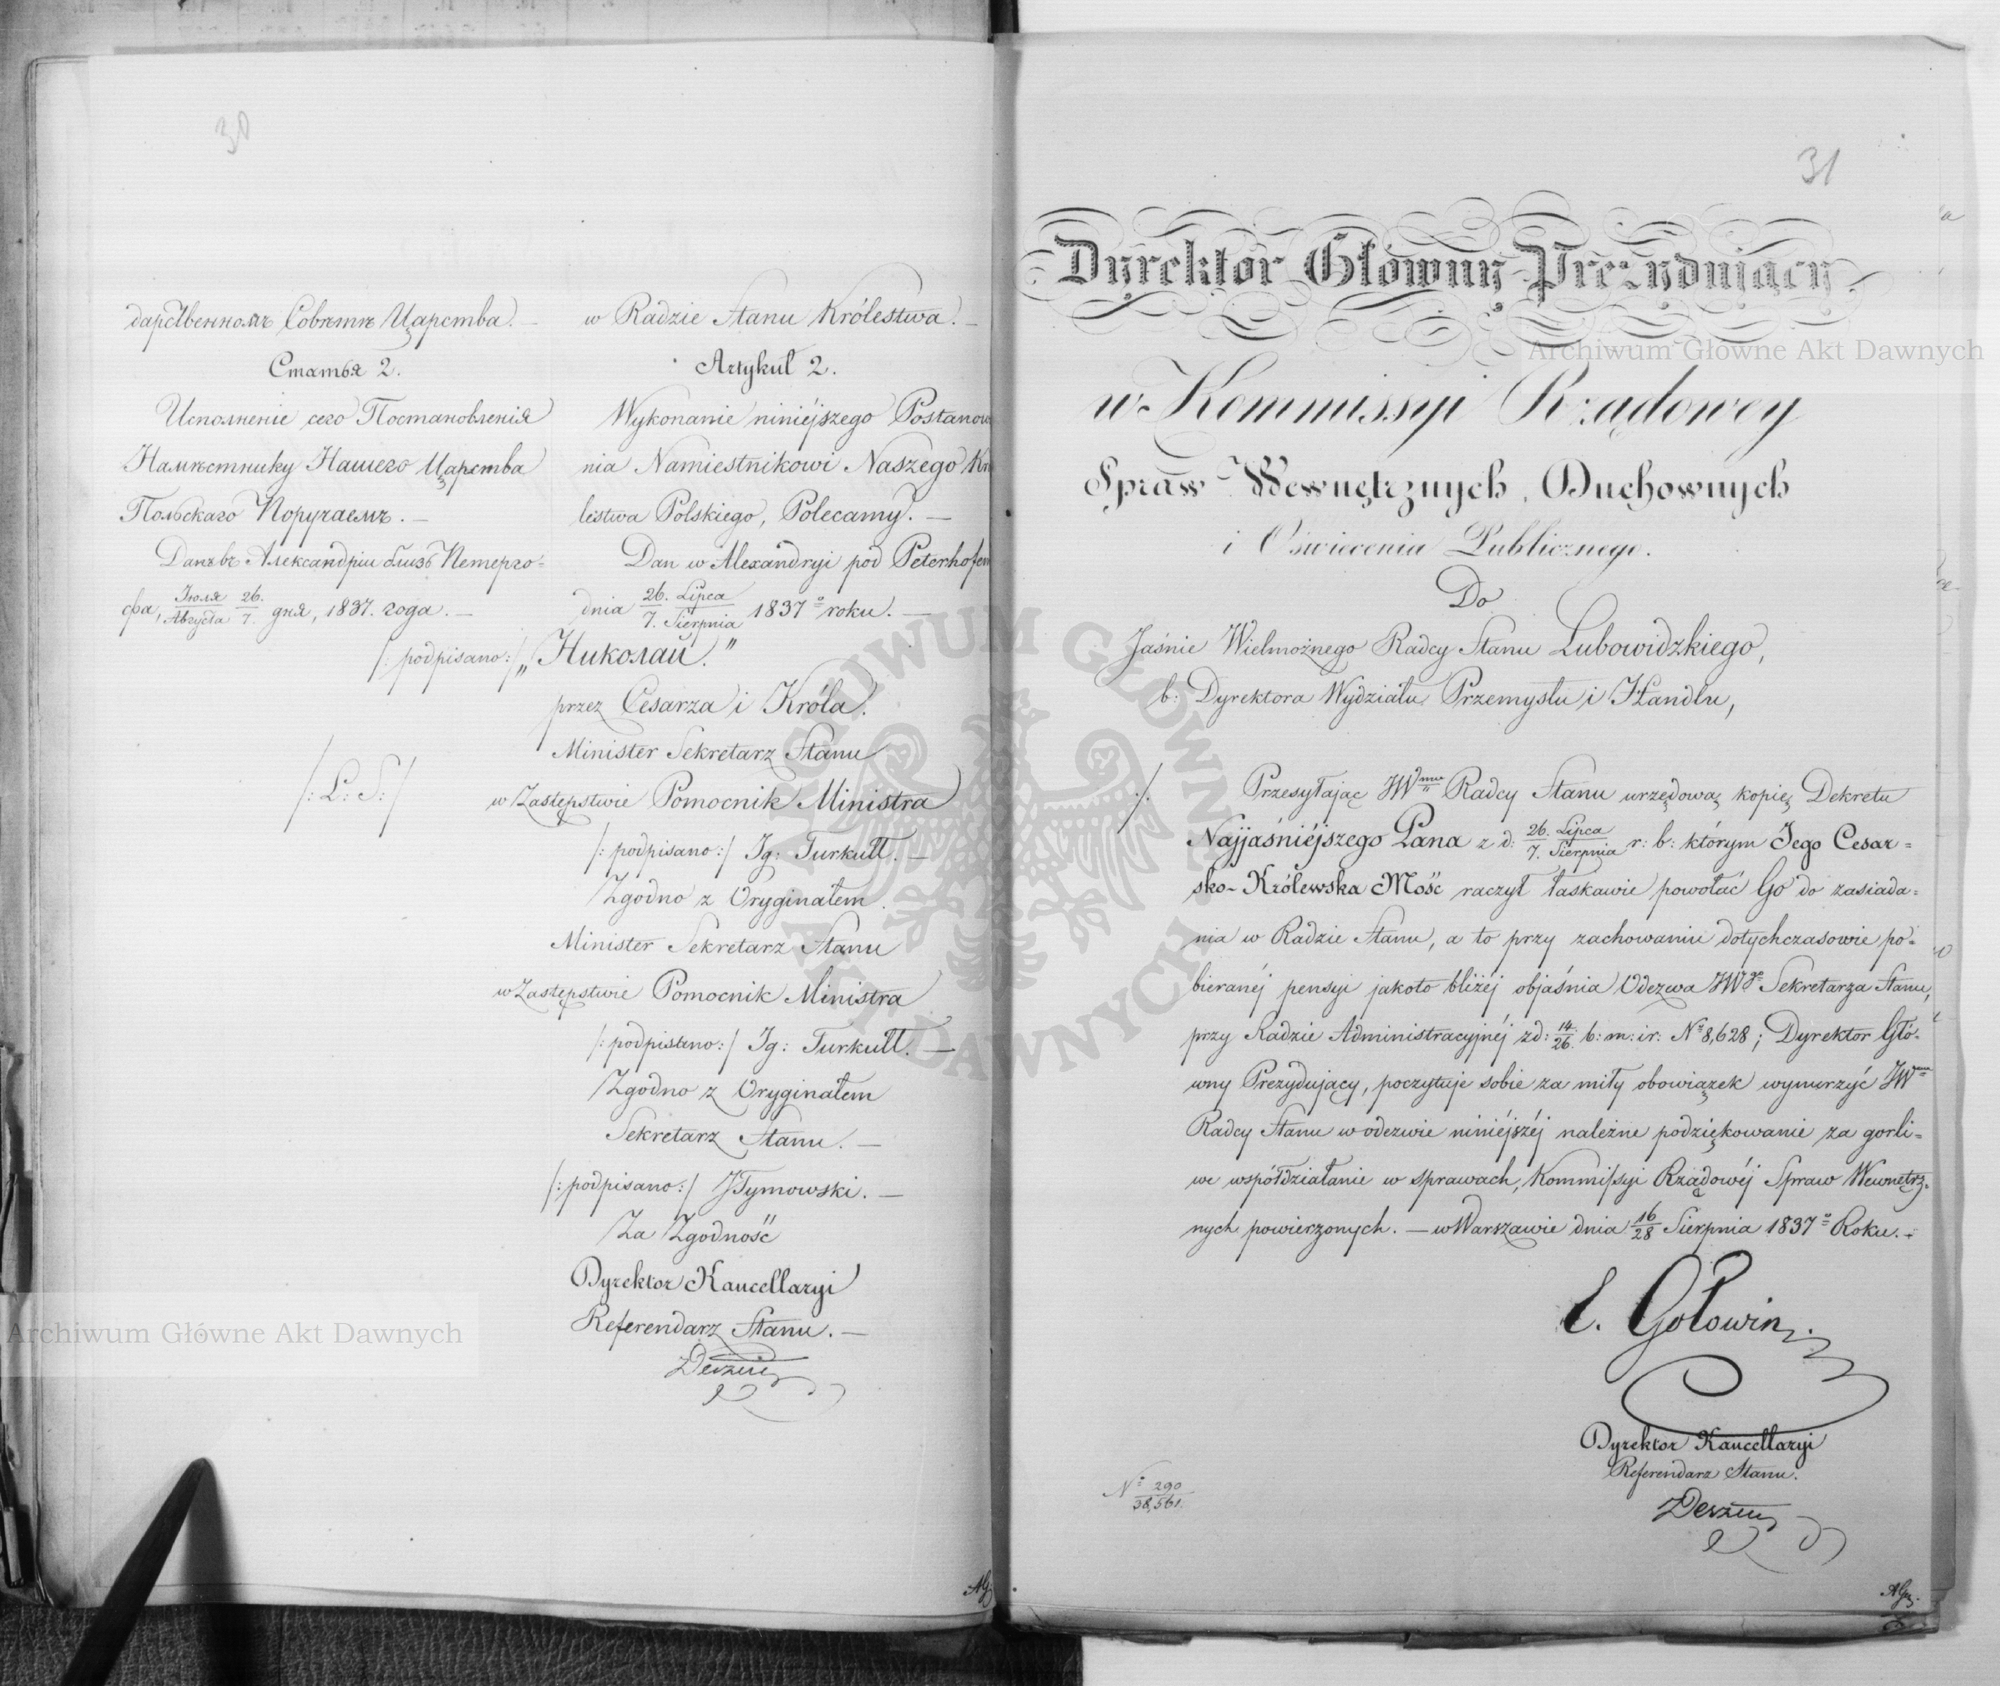 30
дарственномъ Совѣтѣ Царства. —
Статья 2.
Исполненіе сего Постановленія
Намѣстнику Нашего Царства
Польскаго Поручаемъ. —
Данъ въ Александріи близъ Петерго-
фа, Іюля 26./Августа 7. дня, 1837. года. —
w Radzie Stanu Królestwa. —
Artykuł 2.
Wykonanie niniéjszego Postanow
nia Namiestnikowi Naszego Kró
lestwa Polskiego, Polecamy. —
Dan w Alexandryi pod Peterhofem
dnia 26. Lipca/7. Sierpnia 1837º roku. —
/: podpisano :/ „Николай.”
przez Cesarza i Króla.
Minister Sekretarz Stanu
/: L: S: /
w Zastępstwie Pomocnik Ministra
/: podpisano :/ Ig: Turkułł. —
Zgodno z Oryginałem.
Minister Sekretarz Stanu
w Zastępstwie Pomocnik Ministra
/: podpisano :/ Ig: Turkułł. —
Zgodno z Oryginałem
Sekretarz Stanu. —
/: podpisano :/ JTymowski. —
Za Zgodność
Dyrektor Kancellaryi
Referendarz Stanu. —
31
Dyrektor Główny Prezydujący
w Kommissyi Rządowey
Spraw Wewnętrznych, Duchownych
i Oświecenia Publicznego.
Do
Jaśnie Wielmożnego Radcy Stanu Lubowidzkiego,
b: Dyrektora Wydziału Przemysłu i Handlu,
Przesyłając JWmu Radcy Stanu urzędową kopię Dekretu
Najjaśniéjszego Pana z d: 26. Lipca/7. Sierpnia r: b: którym Jego Cesar=
sko-Królewska Mość raczył łaskawie powołać Go do zasiada=
nia w Radzie Stanu, a to przy zachowaniu dotychczasowie po=
bieranéj pensyi jakoto bliżéj objaśnia Odezwa JWgo Sekretarza Stanu,
przy Radzie Administracyjnéj z d: 14/26. b: m: i r: Nr 8,628; Dyrektor Głó=
wny Prezydujący, poczytuje sobie za miły obowiązek wynurzyć JWmu
Radcy Stanu w odezwie niniéjszéj należne podziękowanie za gorli=
we współdziałanie w sprawach, Kommissyi Rządowéj Spraw Wewnętrz=
nych powierzonych. — w Warszawie dnia 16/28 Sierpnia 1837º Roku. —
E. Gołowin.
Dyrektor Kancellaryi
Referendarz Stanu.
Nº 290/38,561.
Archiwum Główne Akt Dawnych
Archiwum Główne Akt Dawnych
ARCHIWUM GŁÓWNE AKT DAWNYCH